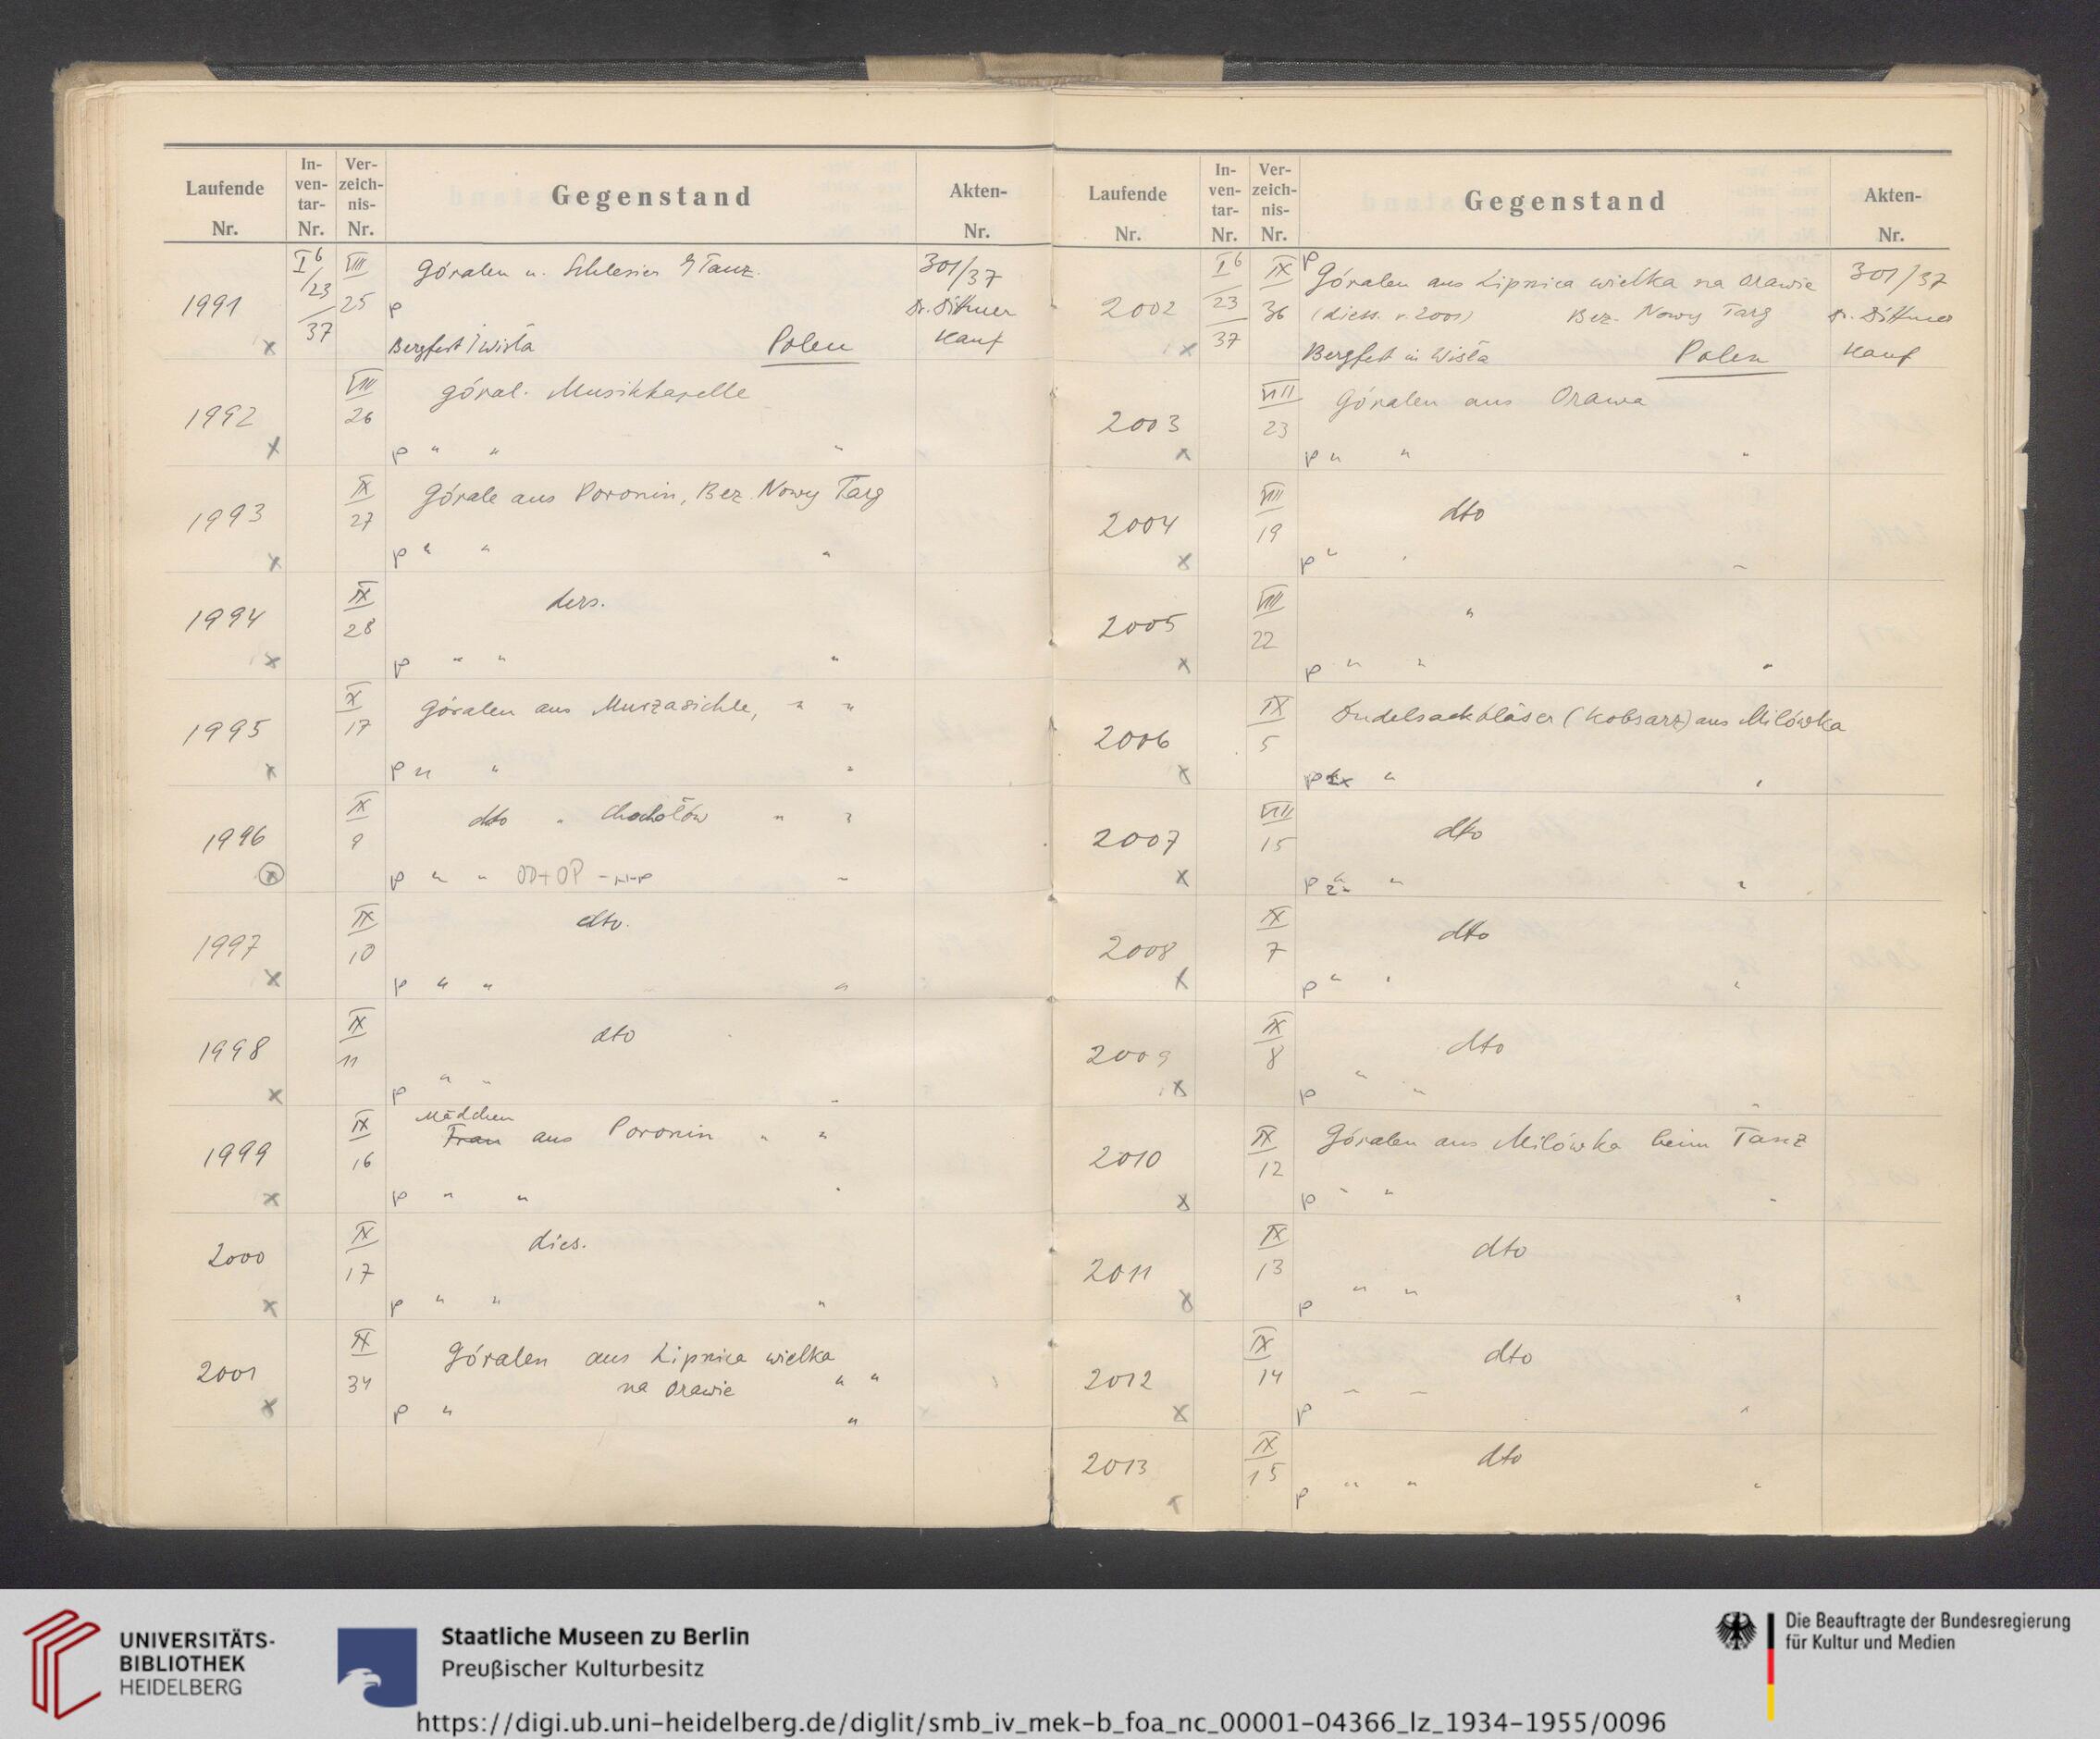 Laufende Nr. In-ven-tar-Nr. Ver-zeich-nis-Nr. Gegenstand Akten-Nr.
1991 I b/23/37 VIII/25 Góralen u. Schlesier Tanz. 301/37
p Dr. Dittmer
x Bergfest i Wisła Polen Kauf
1992 VIII/26 góral. Musikkapelle
x p " " "
1993 IX/27 Górale aus Poronin, Bez. Nowy Targ
x p " " "
1994 IX/28 ders.
x p " " "
1995 IX/17 Góralen aus Murzasichle, " "
x p " " "
1996 IX/9 dto " Chochołów " "
x p " " OD+OP "
1997 IX/10 dto.
x p " " "
1998 IX/11 dto
x p " " "
1999 IX/16 Mädchen
Frau aus Poronin " "
x p " " "
2000 IX/17 dies.
x p " " "
2001 IX/34 Góralen aus Lipnica wielka
na Orawie " "
x p " "
Laufende Nr. In-ven-tar-Nr. Ver-zeich-nis-Nr. Gegenstand Akten-Nr.
2002 I b/23/37 IX/36 p Góralen aus Lipnica wielka na Orawie 301/37
(diess. v. 2001) Bez. Nowy Targ Dr. Dittmer
x Bergfest in Wisła Polen Kauf
2003 VIII/23 Góralen aus Orawa
x p " " "
2004 VIII/19 dto
x p " " "
2005 VIII/22 "
x p " " "
2006 IX/5 Dudelsackbläser (Kobsarz) aus Milówka
x p " "
2007 VIII/15 dto
x p " " "
2008 IX/7 dto
x p " " "
2009 IX/8 dto
x p " " "
2010 IX/12 Góralen aus Milówka beim Tanz
x p " " "
2011 IX/13 dto
x p " " "
2012 IX/14 dto
x p " " "
2013 IX/15 dto
p " " "
UNIVERSITÄTS-
BIBLIOTHEK
HEIDELBERG
Staatliche Museen zu Berlin
Preußischer Kulturbesitz
Die Beauftragte der Bundesregierung
für Kultur und Medien
https://digi.ub.uni-heidelberg.de/diglit/smb_iv_mek-b_foa_nc_00001-04366_lz_1934-1955/0096